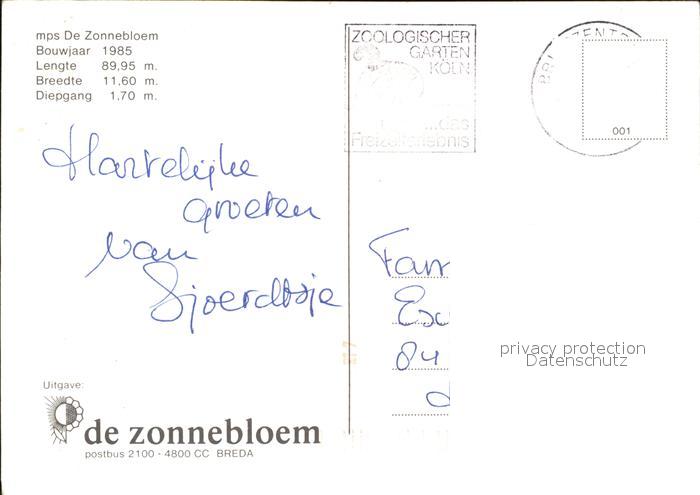 mps De Zonnebloem
Bouwjaar 1985
Lengte 89,95 m.
Breedte 11,60 m.
Diepgang 1,70 m.
ZOOLOGISCHER
GARTEN
KÖLN
...das
Freizeiterlebnis
001
Hartelijke
groeten
van
Sjoerdtsje
Fam
84
privacy protection
Datenschutz
Uitgave:
de zonnebloem
postbus 2100 - 4800 CC BREDA